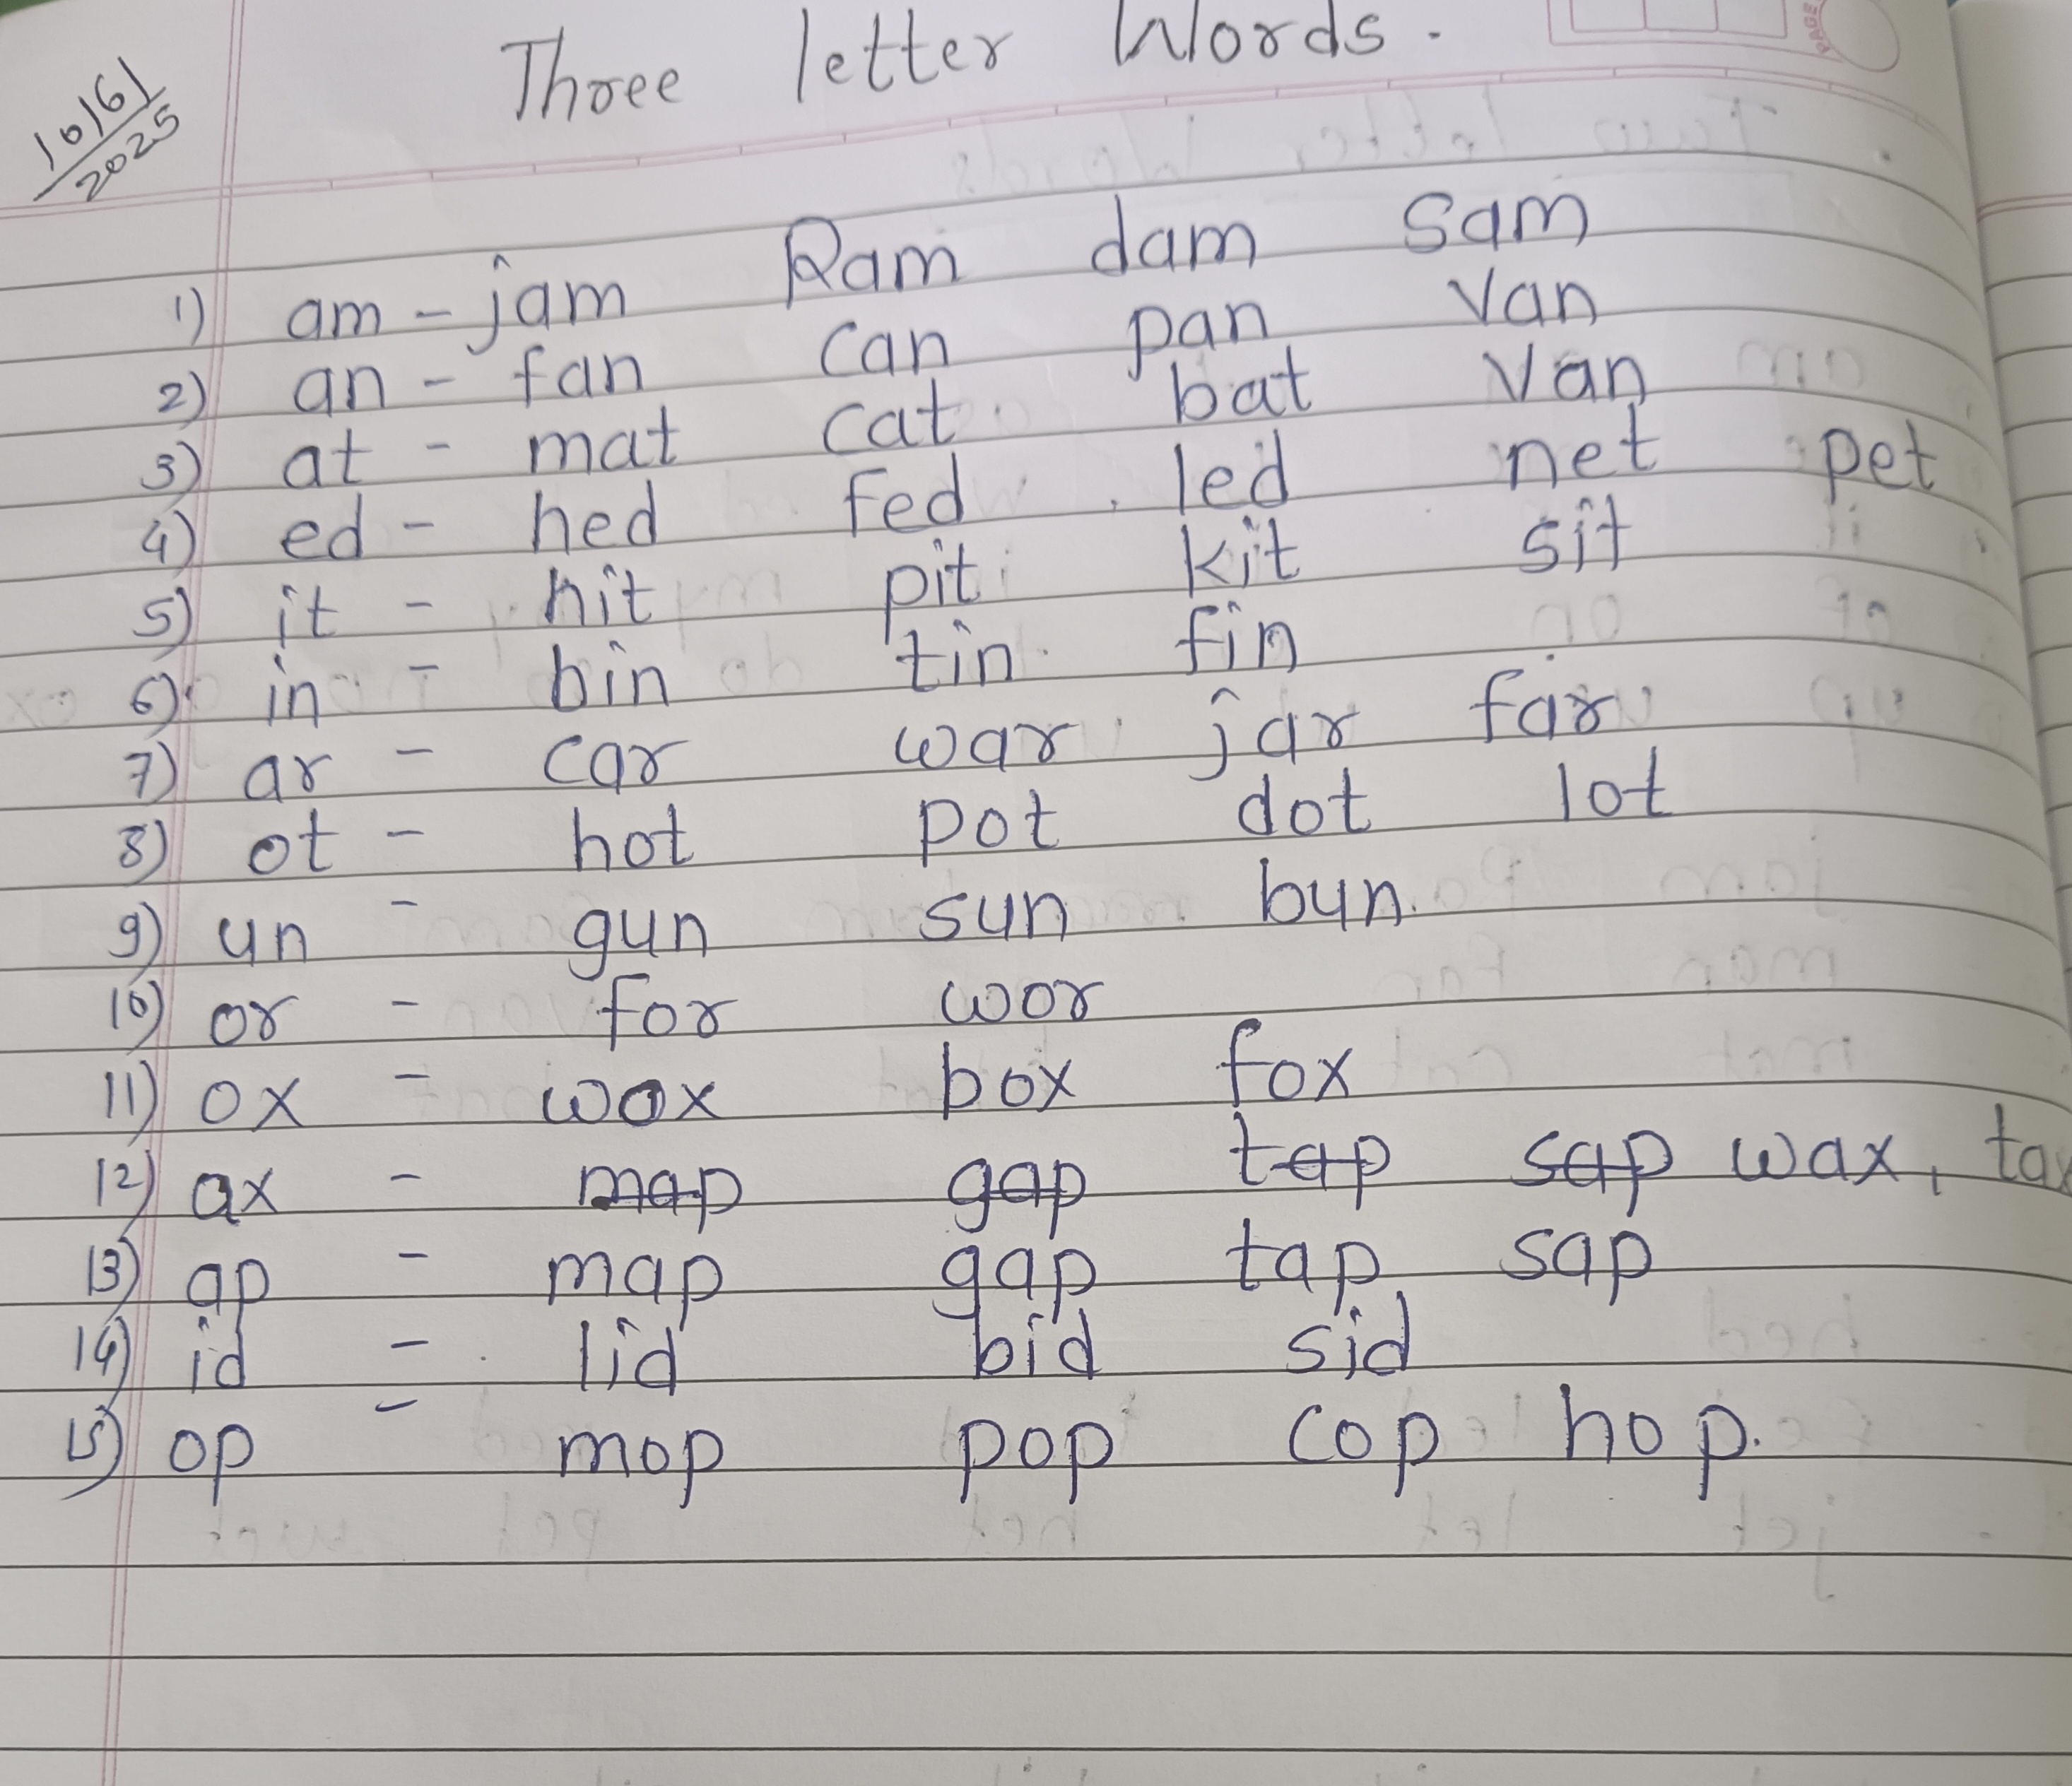 Three letter Words.
10/6/
2025
1) am - jam Ram dam Sam
2) an - fan can pan van
3) at - mat cat bat van
4) ed - hed fed led net pet
5) it - hit pit kit sit
6) in - bin tin fin
7) ar - car war jar far
8) ot - hot pot dot lot
9) un - gun sun bun.
10) or - for wor
11) ox - wox box fox
12) ax - map gap tap sap wax, tax
13) ap - map gap tap sap
14) id - lid bid sid
15) op - mop pop cop hop.
PAGE